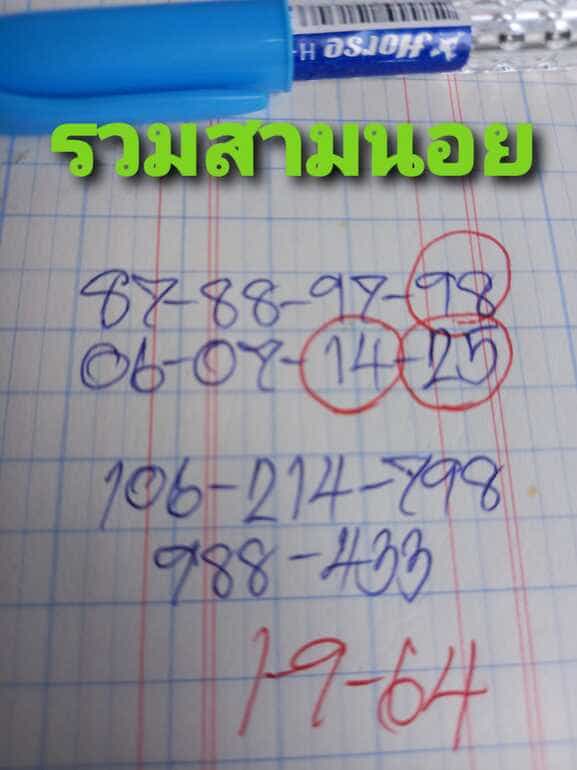 Horse H-
รวมสามนอย
87-88-97-98
06-07-14-25
106-214-798
988-433
1-9-64